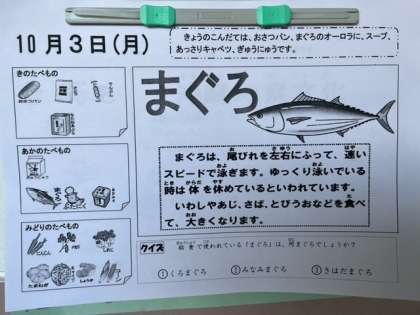 10月3日(月)
きょうのこんだては、おさつパン、まぐろのオーロラに、スープ、
あっさりキャベツ、ぎゅうにゅうです。
きのたべもの
まぐろ
あかのたべもの
まぐろは、尾びれを左右にふって、速い
スピードで泳ぎます。ゆっくり泳いでいる
時は体を休めているといわれています。
いわしやあじ、さば、とびうおなどを食べ
て、大きくなります。
みどりのたべもの
にんじん
たまねぎ
しょうが
クイズ 給食で使われている「まぐろ」は、何まぐろでしょうか?
①くろまぐろ ②みなみまぐろ ③きはだまぐろ